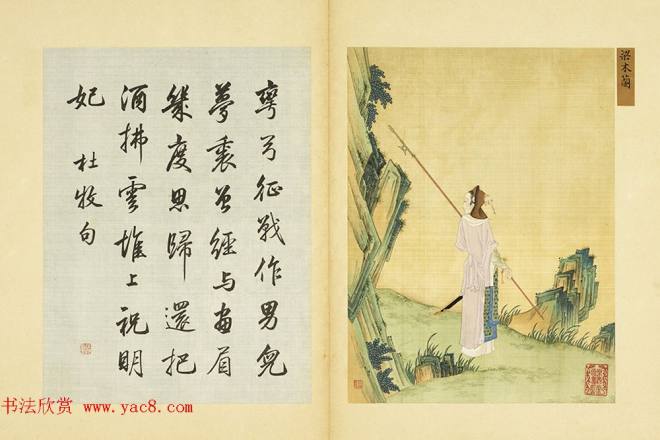 梁木蘭
彎弓征戰作男兒
夢裏曾經与畫眉
幾度思歸還把
酒拂雲堆上祝明
妃
杜牧句
书法欣赏 www.yac8.com